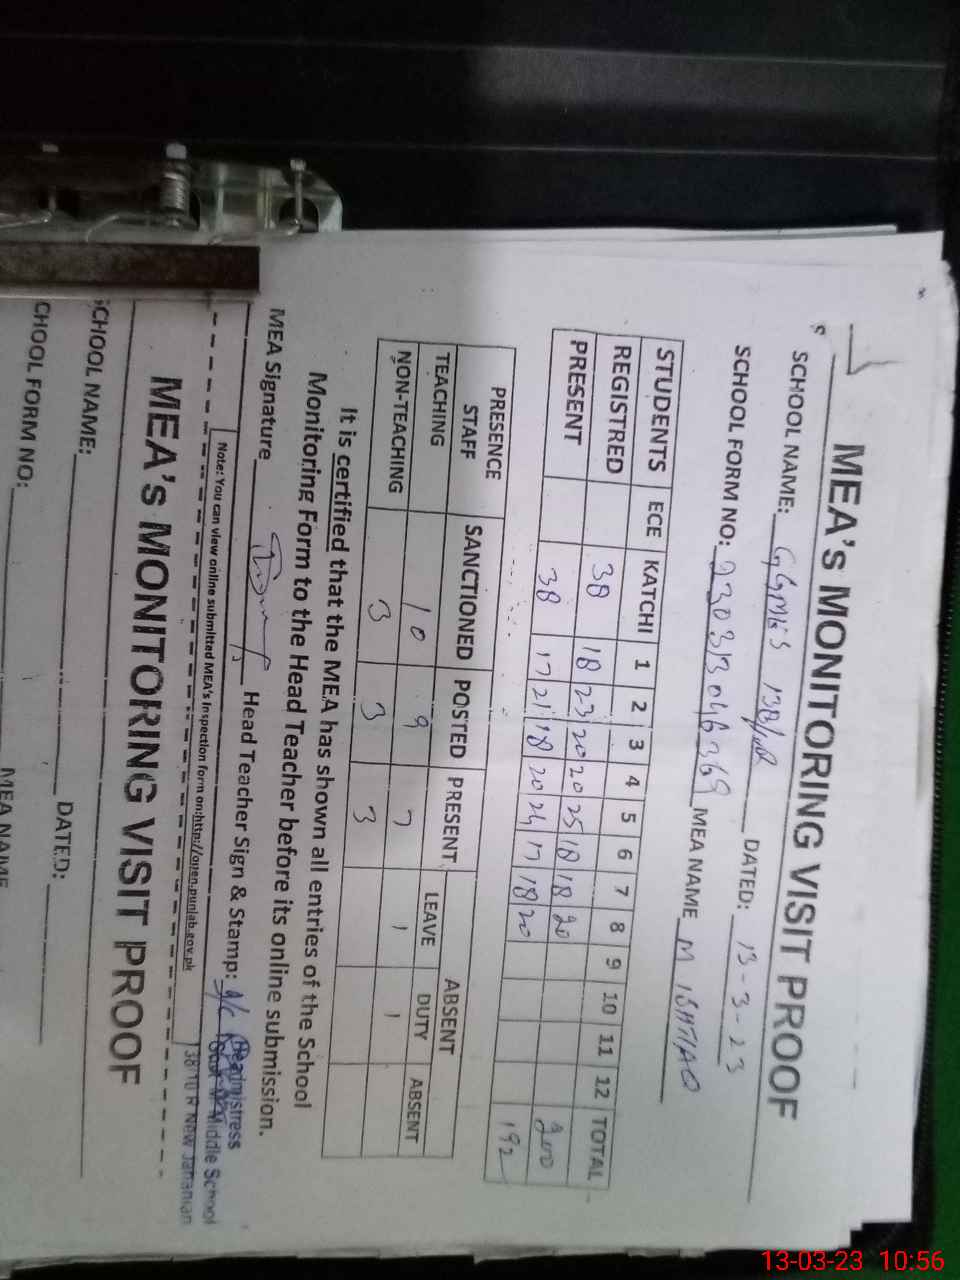 MEA's MONITORING VISIT PROOF
SCHOOL NAME: GGMES 138/10R DATED: 13-3-23
SCHOOL FORM NO: MEA NAME M ISHTIAQ
STUDENTS ECE KATCHI 1 2 3 4 5 6 7 8 9 10 11 12 TOTAL
REGISTRED 38 18 23 20 20 25 18 18 20 200
PRESENT 38 17 21 18 20 24 17 18 20 192
PRESENCE ABSENT
STAFF SANCTIONED POSTED PRESENT LEAVE DUTY ABSENT
TEACHING 10 9 7 1 1
NON-TEACHING 3 3 3
It is certified that the MEA has shown all entries of the School
Monitoring Form to the Head Teacher before its online submission.
MEA Signature Head Teacher Sign & Stamp:
Headmistress
Middle School
138/10 R New Jahanian
Note: You can view online submitted MEA's Inspection form on:http://open.punjab.gov.pk
MEA's MONITORING VISIT PROOF
SCHOOL NAME: DATED:
CHOOL FORM NO: MEA NAME
13-03-23 10:56